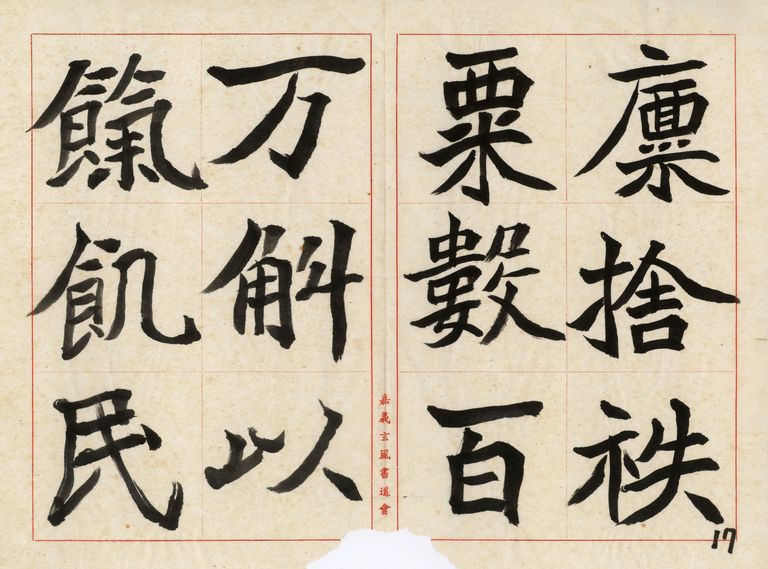 廩捨祑
粟數百
万斛以
餼飢民
嘉義玄風書道會
17